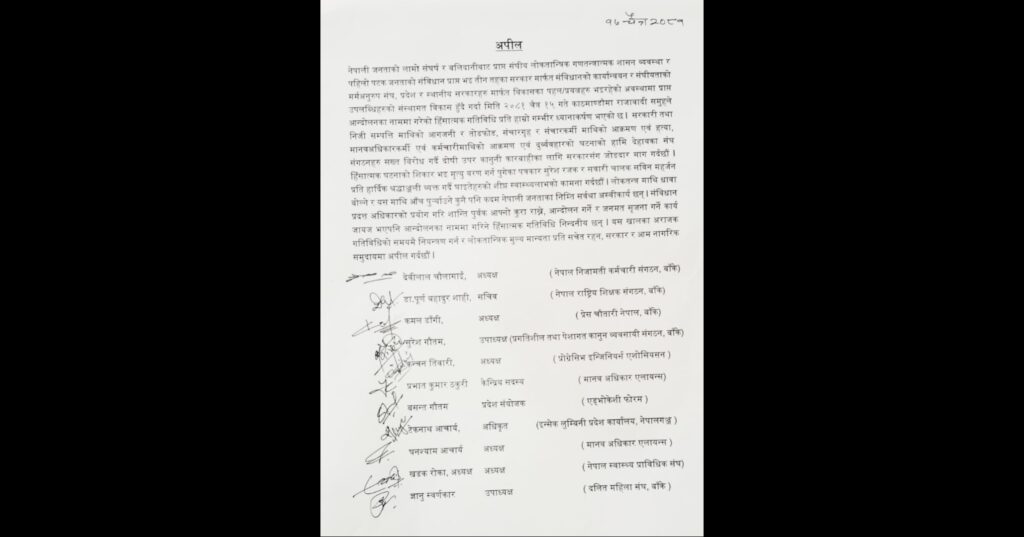 १७ चैत्र २०८१
अपील
नेपाली जनताको लामो संघर्ष र बलिदानीबाट प्राप्त संघीय लोकतान्त्रिक गणतन्त्रात्मक शासन व्यवस्था र
पहिलो पटक जनताको संविधान प्राप्त भइ तीन तहका सरकार मार्फत संविधानको कार्यान्वयन र संघीयताको
मर्मअनुरुप संघ, प्रदेश र स्थानीय सरकारहरु मार्फत विकासका पहल/प्रयत्नहरु भइरहेको अवस्थामा प्राप्त
उपलब्धिहरुको संस्थागत विकास हुँदै गर्दा मिति २०८१ चैत्र १५ गते काठमाण्डौमा राजावादी समुहले
आन्दोलनका नाममा गरेको हिंसात्मक गतिविधि प्रति हाम्रो गम्भीर ध्यानाकर्षण भएको छ । सरकारी तथा
निजी सम्पत्ति माथिको आगजनी र तोडफोड, संचारगृह र संचारकर्मी माथिको आक्रमण एवं हत्या,
मानवअधिकारकर्मी एवं कर्मचारीमाथिको आक्रमण एवं दुर्व्यवहारको घटनाको हामि देहायका संघ
संगठनहरु सख्त बिरोध गर्दै दोषी उपर कानुनी कारबाहीका लागि सरकारसंग जोडदार माग गर्दछौं ।
हिंसात्मक घटनाको शिकार भइ मृत्यु वरण गर्न पुगेका पत्रकार सुरेश रजक र सवारी चालक सविन महर्जन
प्रति हार्दिक श्रद्धाञ्जली व्यक्त गर्दै घाइतेहरुको शीघ्र स्वास्थ्यलाभको कामना गर्दछौं । लोकतन्त्र माथि धावा
बोल्ने र यस माथि आँच पुर्‍याउने कुनै पनि कदम नेपाली जनताका निम्ति सर्वथा अस्वीकार्य छन् । संविधान
प्रदत्त अधिकारको प्रयोग गरि शान्ति पुर्वक आफ्नो कुरा राख्ने, आन्दोलन गर्ने र जनमत सृजना गर्ने कार्य
जायज भएपनि आन्दोलनका नाममा गरिने हिंसात्मक गतिविधि निन्दनीय छन् । यस खालका अराजक
गतिविधिको समयमै नियन्त्रण गर्न र लोकतान्त्रिक मुल्य मान्यता प्रति सचेत रहन, सरकार र आम नागरिक
समुदायमा अपील गर्दछौं ।
देवीलाल चौलागाई, अध्यक्ष ( नेपाल निजामती कर्मचारी संगठन, बाँके)
डा.पूर्ण बहादुर शाही, सचिव ( नेपाल राष्ट्रिय शिक्षक संगठन, बाँके)
कमल डाँगी, अध्यक्ष ( प्रेस चौतारी नेपाल, बाँके)
सुरेश गौतम, उपाध्यक्ष (प्रगतिशील तथा पेशागत कानुन व्यवसायी संगठन, बाँके)
कन्चन तिवारी, अध्यक्ष ( प्रोग्रेसिभ इन्जिनियर्स एशोसियसन )
प्रभात कुमार ठकुरी केन्द्रिय सदस्य ( मानव अधिकार एलायन्स)
बसन्त गौतम प्रदेश संयोजक ( एड्भोकेशी फोरम )
टेकनाथ आचार्य, अधिकृत (इन्सेक लुम्बिनी प्रदेश कार्यालय, नेपालगञ्ज )
घनश्याम आचार्य अध्यक्ष ( मानव अधिकार एलायन्स )
खडक रोका, अध्यक्ष अध्यक्ष ( नेपाल स्वास्थ्य प्राविधिक संघ)
ज्ञानु स्वर्णकार उपाध्यक्ष ( दलित महिला संघ, बाँके )